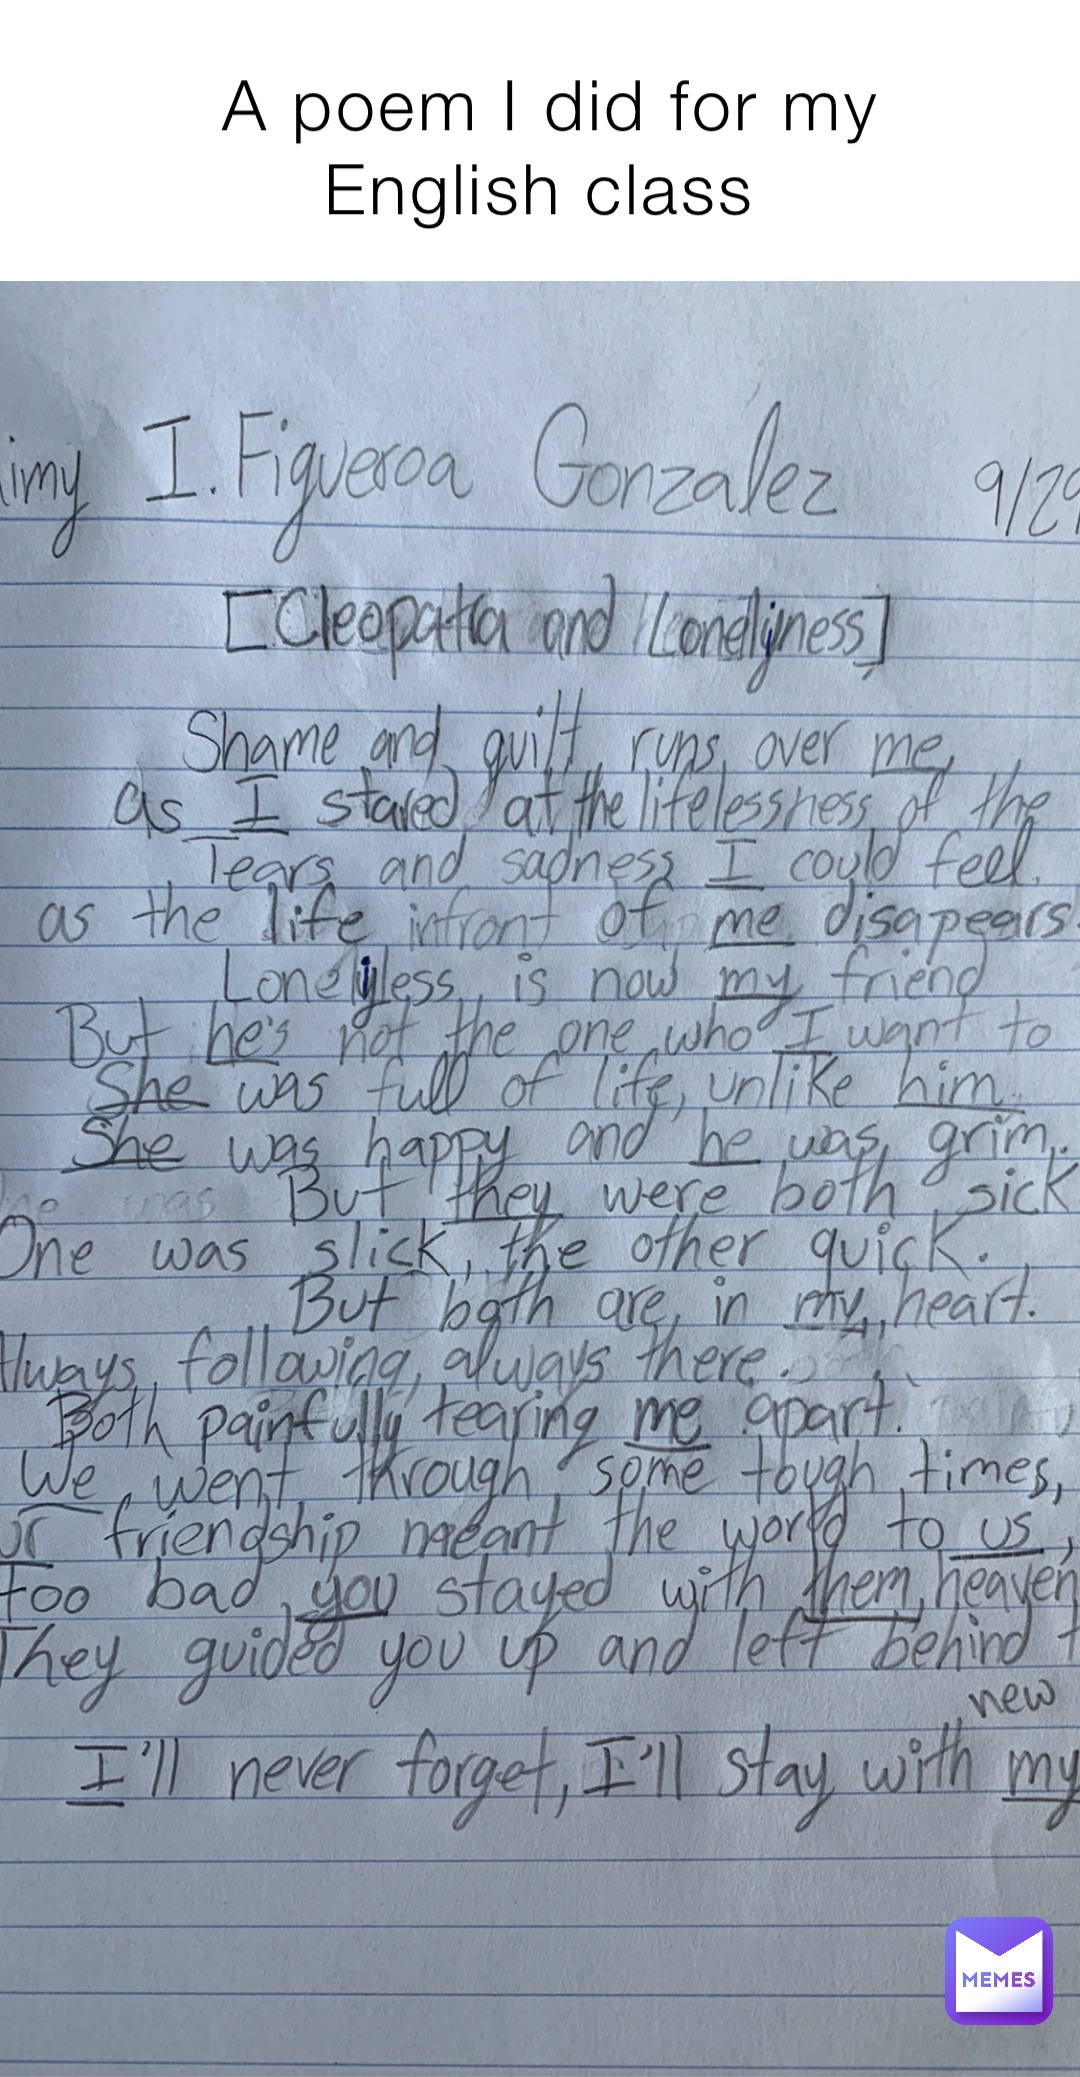 A poem I did for my
English class
imy I. Figueroa Gonzalez 9/29
[Cleopatra and Lonelyness]
Shame and guilt runs over me,
as I stared at the lifelessness of the
Tears and sadness I could feel.
as the life infront of me disapears
Lonelyless is now my friend
But he's not the one who I want to
She was full of life, unlike him.
She was happy and he was grim.
But they were both sick
One was slick, the other quick.
But both are in my heart.
Always following, always there.
Both painfully tearing me apart.
We went through some tough times,
ur friendship meant the world to us,
Too bad you stayed with them, heaven
They guided you up and left behind
new
I'll never forget, I'll stay with my
MEMES